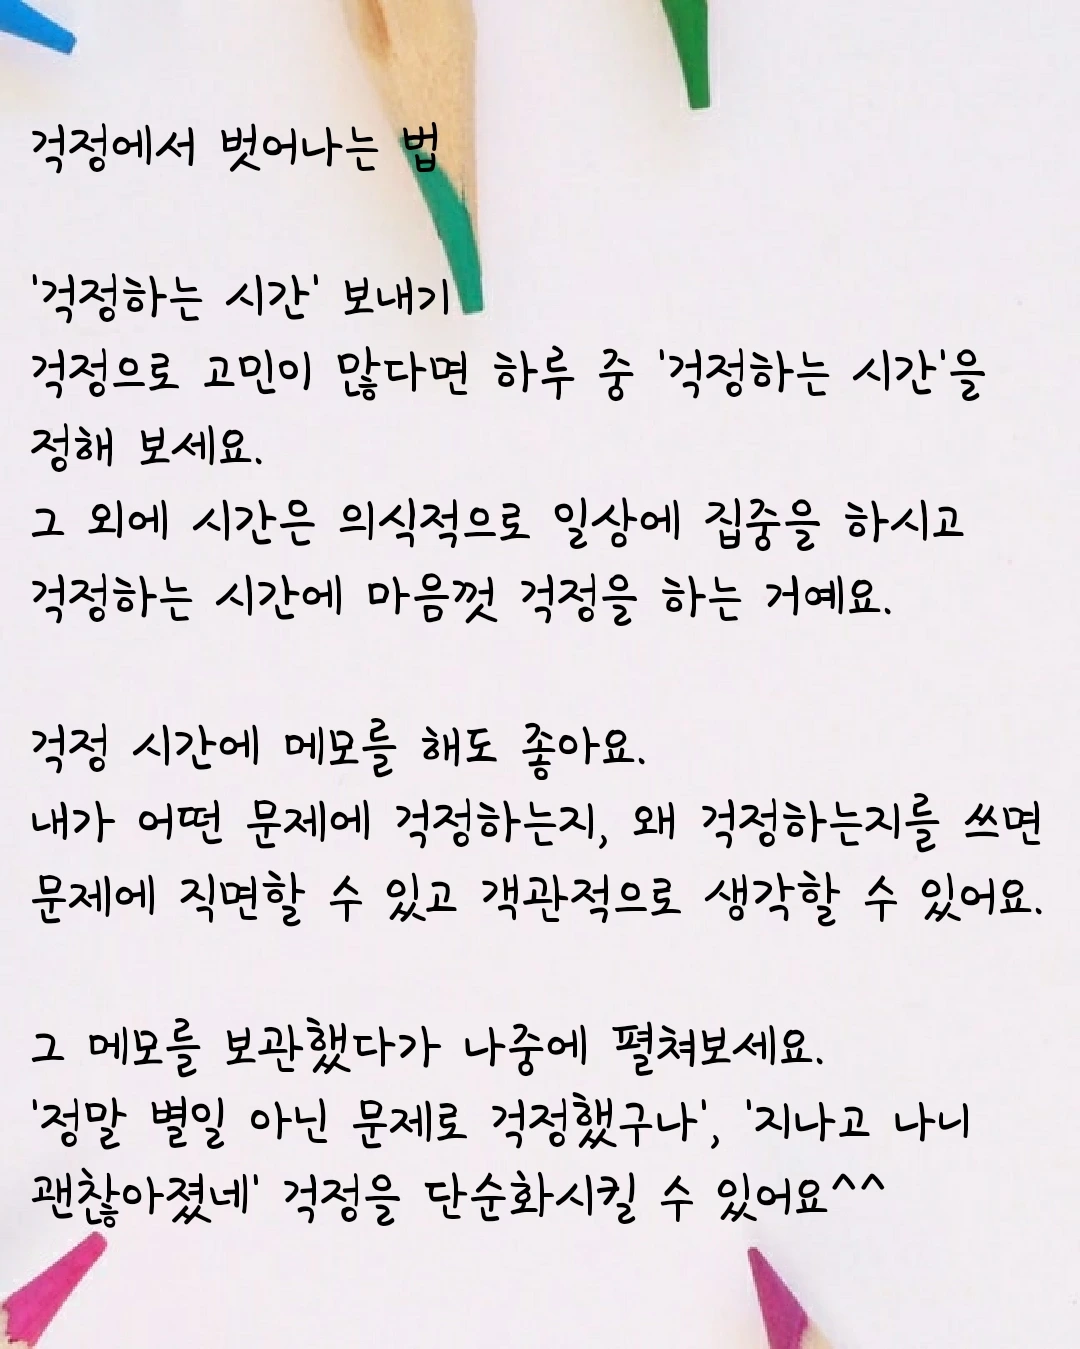 걱정에서 벗어나는 법
'걱정하는 시간' 보내기
걱정으로 고민이 많다면 하루 중 '걱정하는 시간'을
정해 보세요.
그 외에 시간은 의식적으로 일상에 집중을 하시고
걱정하는 시간에 마음껏 걱정을 하는 거예요.
걱정 시간에 메모를 해도 좋아요.
내가 어떤 문제에 걱정하는지, 왜 걱정하는지를 쓰면
문제에 직면할 수 있고 객관적으로 생각할 수 있어요.
그 메모를 보관했다가 나중에 펼쳐보세요.
'정말 별일 아닌 문제로 걱정했구나', '지나고 나니
괜찮아졌네' 걱정을 단순화시킬 수 있어요^^